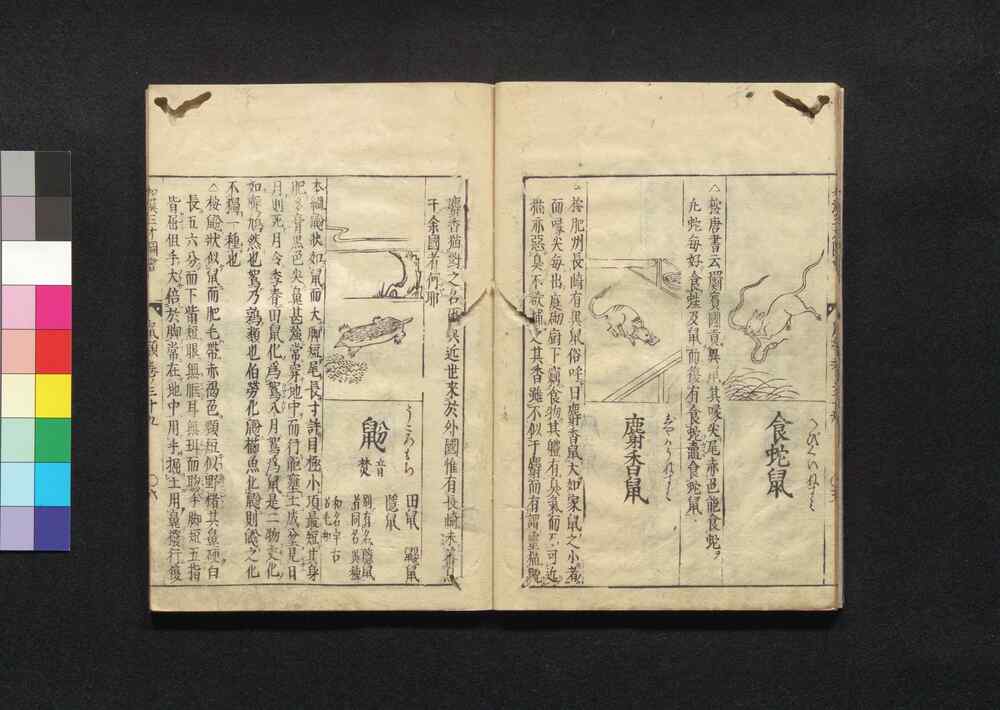 食蛇鼠
へびくいねずミ
△按唐書云罽賓國貢異鼠其喙尖尾赤色能食蛇
凡蛇毎好食蛙及鼠而復有食蛇鼈食蛇鼠
麝香鼠
じやかうねずミ
△按肥州長崎有異鼠俗呼曰麝香鼠大如家鼠之小者
而喙尖毎出庭砌厨下竊食物其軆有臭氣而不可近
猫亦惡臭不欲捕之其香雖不似于麝而有謂霊猫
麝香猫對之名
近世来於外國惟有長崎未蕃息
于余國者何耶
うころもち
鼢
音焚
田鼠 鼹鼠
隱鼠
別有名隱鼠
者同名異種
和名宇古
呂毛知
本綱鼢狀如鼠而大脚短尾長寸許目極小項最短其身
肥多膏黒色尖鼻甚強常穿地中而行能壅土成坌見日
月則死月令季春田鼠化為鴽八月鴽為鼠是二物交化
如鷹鳩然也鴽乃鶉類也伯勞化鼢鰭魚化鼢則鼢之化
不獨一種也
△按鼢狀似鼠而肥毛帶赤褐色頸短似野猪其鼻硬白
長五六分而下觜短眼無眶耳無珥而聡手脚短五指
皆屈但手大倍於脚常在地中用手掘土用鼻撥行復